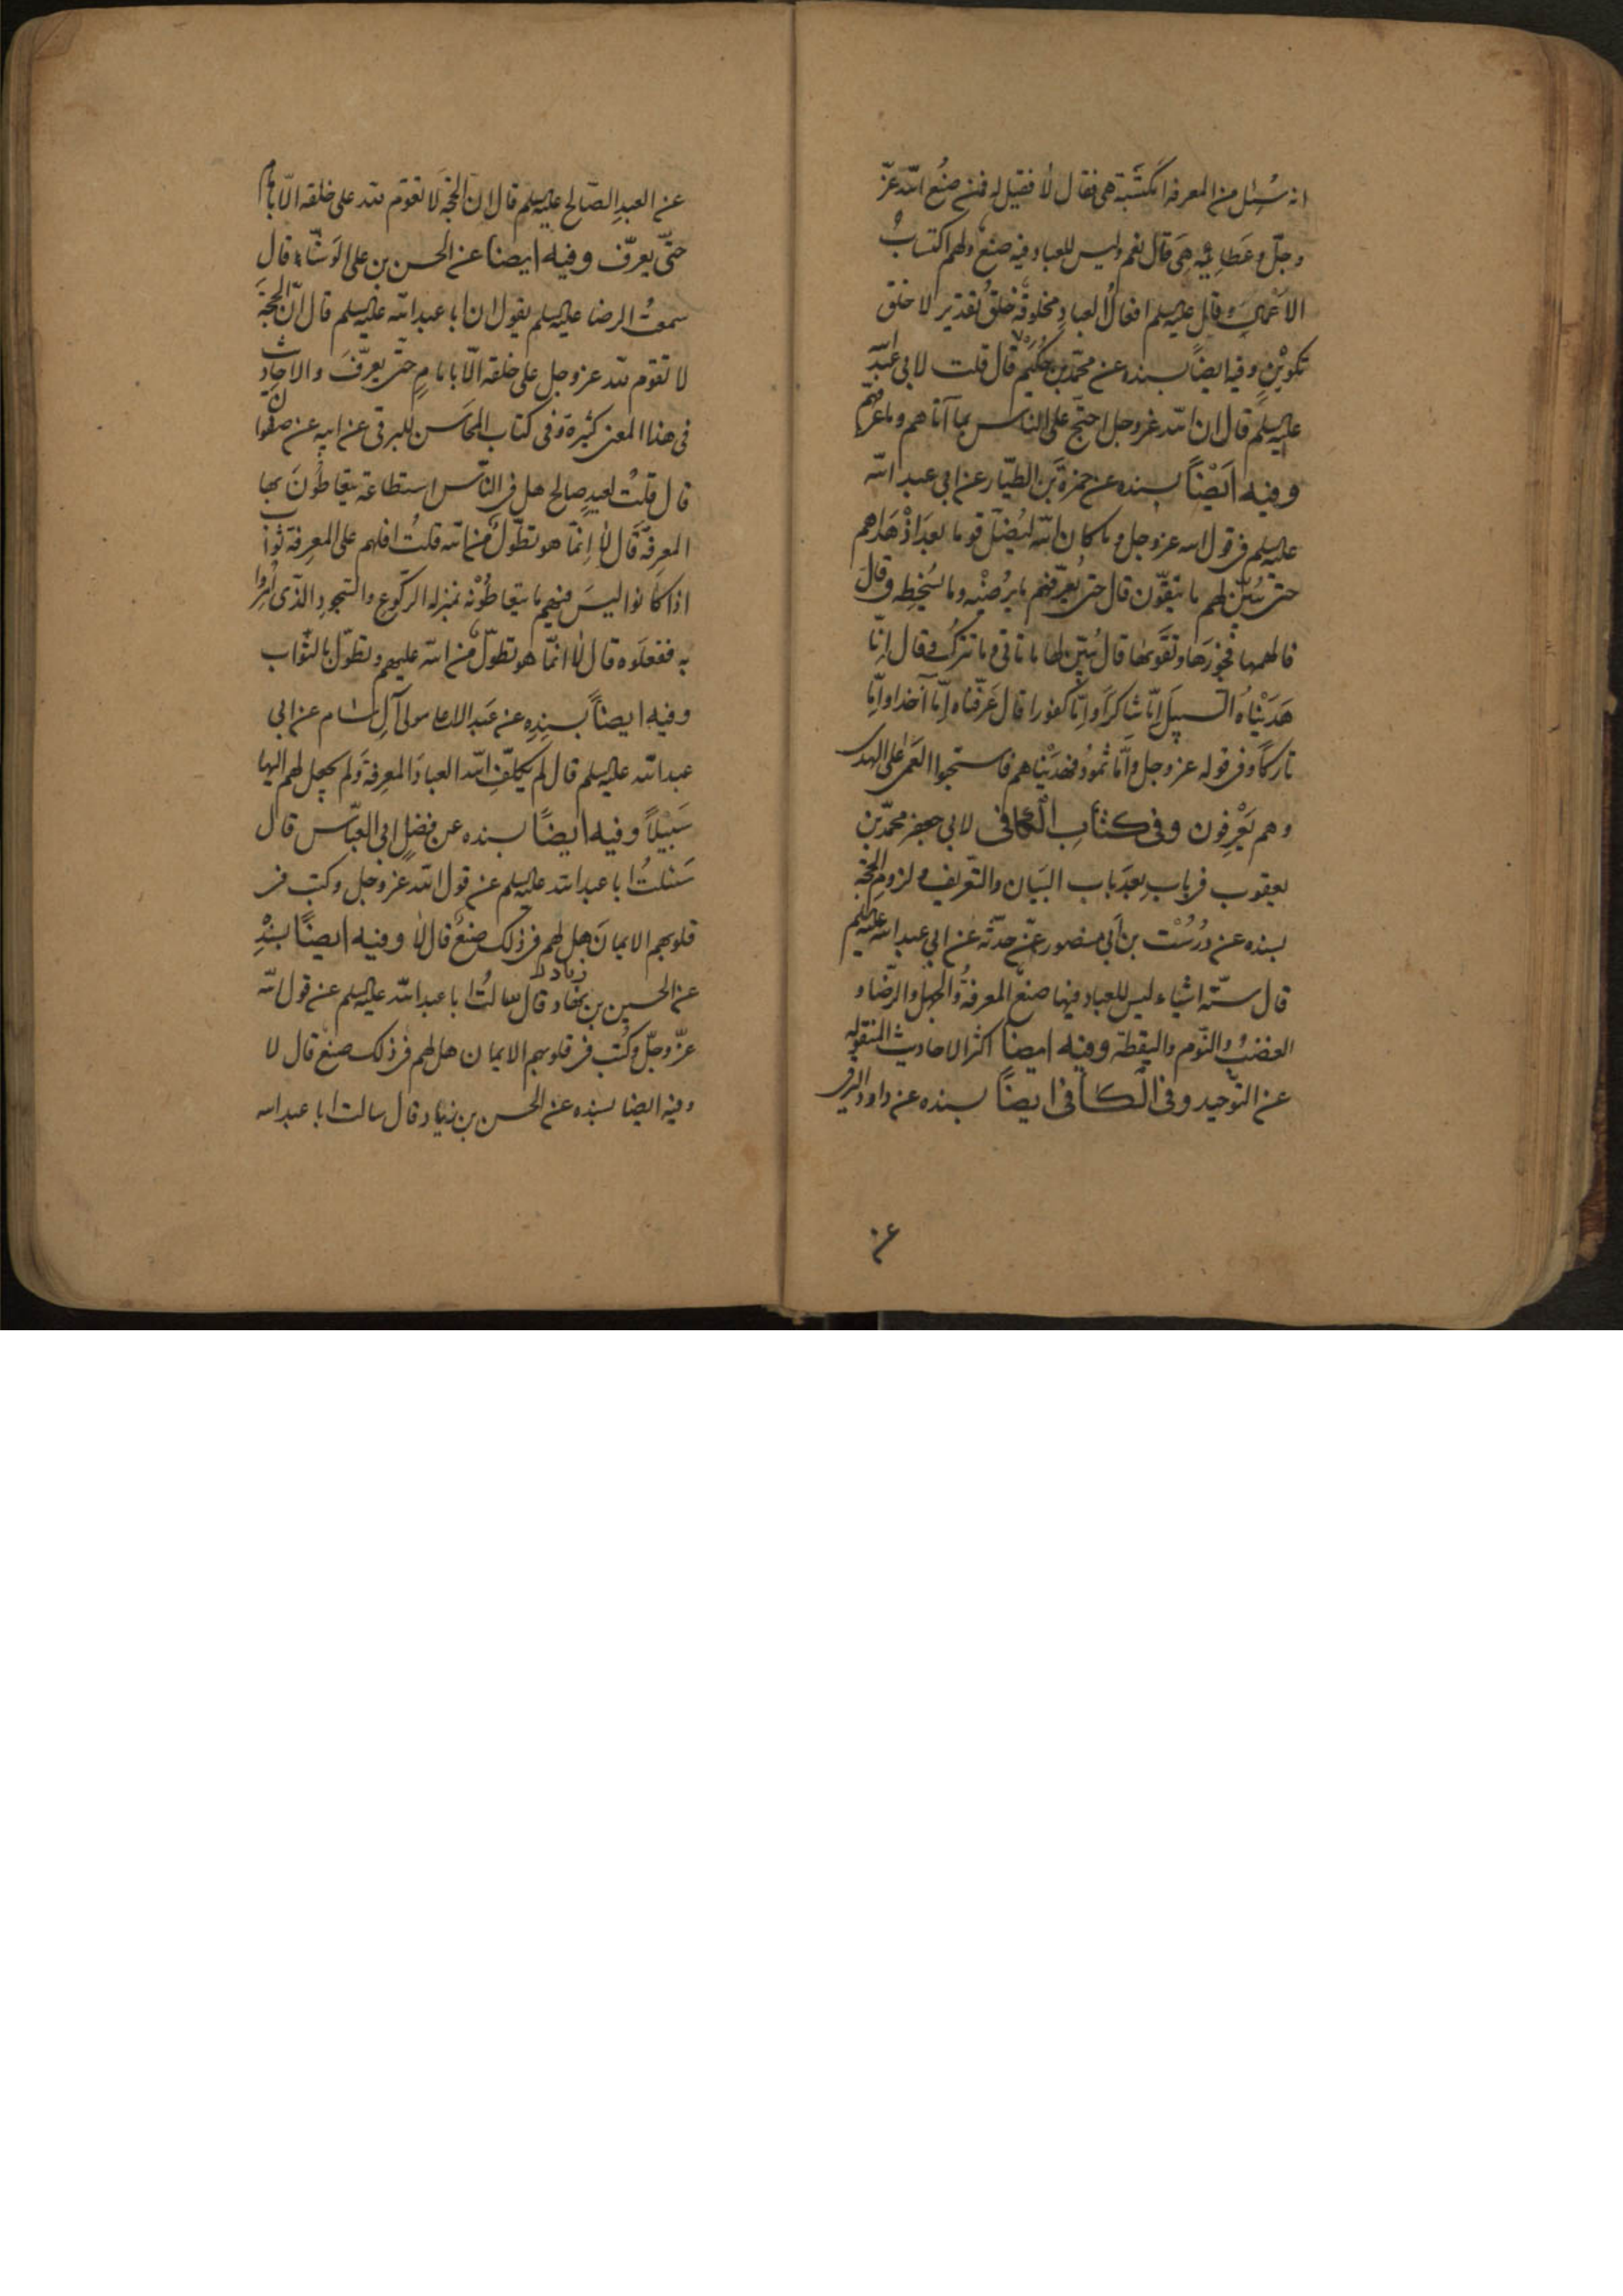 انه سُئِل من المعرفه امكتسَبة هى فقال لا فقيل له فمن صُنع الله عزّ
وجلّ و عَطائيه هىَ قال نعم وليس للعباد فيه صنع ولهم اكتسابُ
الاعمال وقال عليه السلم افعالُ العبادِ مخلوقة خلق تقدير لا خلق
تكوين وفيه ايضاً بسنده عن محمّد بن حكيم قال قلت لابى عبد الله
عليه السلم قال ان الله عزوجل احتجّ على الناس بما آتاهم وما عرّفهم
وفيه اَيْضاً بسنده عن حمزةَ بن الطيّار عن ابى عبد الله
عليه السلم فى قول الله عزوجل وما كان الله ليُضلّ قوما بعدَ اذْ هَداهم
حتى يُبيّن لهم ما يتّقون قال حتى يُعرّفهم ما يرُضيْه وما يُسْخِطه وقالَ
فالهمها فجورَها وتقَوْيها قال بُيّن لها ما تاتى وما تترُك وقال اِنّا
هَدَيْناهُ السبيلَ اِمّا شاكراً واِمّا كفورا قال عَرّفناه اِمّا آخذا واِمّا
تاركاً وفى قوله عزوجل وامّا ثمودُ فهدَيْناهم فاستحبّوا العمَى على الهدى
وهم يَعْرِفون وفى كتابِ الْكافى لابى جعفر محمّد بن
يعقوب فى بابِ بعدَ باب البَيان والتّعريف ولزومِ الحجّة
بسنده عن دُرُسْت بن أبى منصور عمّن حدّثه عن ابى عبد الله عليه السلم
قال ستّة اشياء ليس للعباد فيها صنع المعرفةُ والجهل والرضّا و
الغضبُ والنوّم واليقظة وفيه ايضا اكثر الاحاديث المنقوله
عن التوّحيد وفى الْكافى ايضاً بسنده عن داود الرقى
عن العبدِ الصّالح عليه السلم قال ان الحجّة لا تقوم لله على خلقه الّا بامام
حتّى يعرّف وفيه ايضا عن الحسن بن على الوَشّاء قال
سمعتُ الرضا عليه السلم يقول ان ابا عبد الله عليه السلم قال انّ الحجةَ
لا تقوم لله عزوجل على خلقه الّا بامامٍ حتّى يعرّفَ والاحاديث
فى هذا المعنى كثيرة وفى كتاب المحَاسن للبرقى عن ابيه عن صفوان
قال قلتُ لعبدٍ صالح هل فى النّاس استطاعة يتعاطَونَ بها
المعرفةَ قال لا اِنمّا هو تطوّلٌ من الله قلتُ افلهم على المعرفة ثواب
اذا كانوا ليسَ فيهم ما يتعاطَونْه بمنزلة الركّوع والسّجودِ الّذى اُمِروا
به ففعلوه قال لا انمّا هو تطوّلٌ من الله عليهم وتطوّل بالثوّاب
وفيه ايضاً بسندِه عن عَبد الاعلى مولى آل سام عن ابى
عبد الله عليه السلم قال لم يكلّفِ الله العبادَ المعرفةَ ولم يجعل لهم اليها
سَبيْلاً وفيه ايضاً بسنده عن فضلٍ ابى العبّاس قال
سَئلتُ ابا عبد الله عليه السلم عن قول الله عزوجل وكتب فى
قلوبهم الايمانَ هل لهم فى ذلك صنعٌ قال لا وفيه ايضاً بسنْدِه
عن الحسين بن زياد قال سالتُ ابا عبد الله عليه السلم عن قول الله
عزّ وجلّ وكُتب فى قلوبهم الايمان هل لهم فى ذلك صنع قال لا
وفيه ايضا بسنده عن الحسن بن زياد قال سالت ابا عبد الله